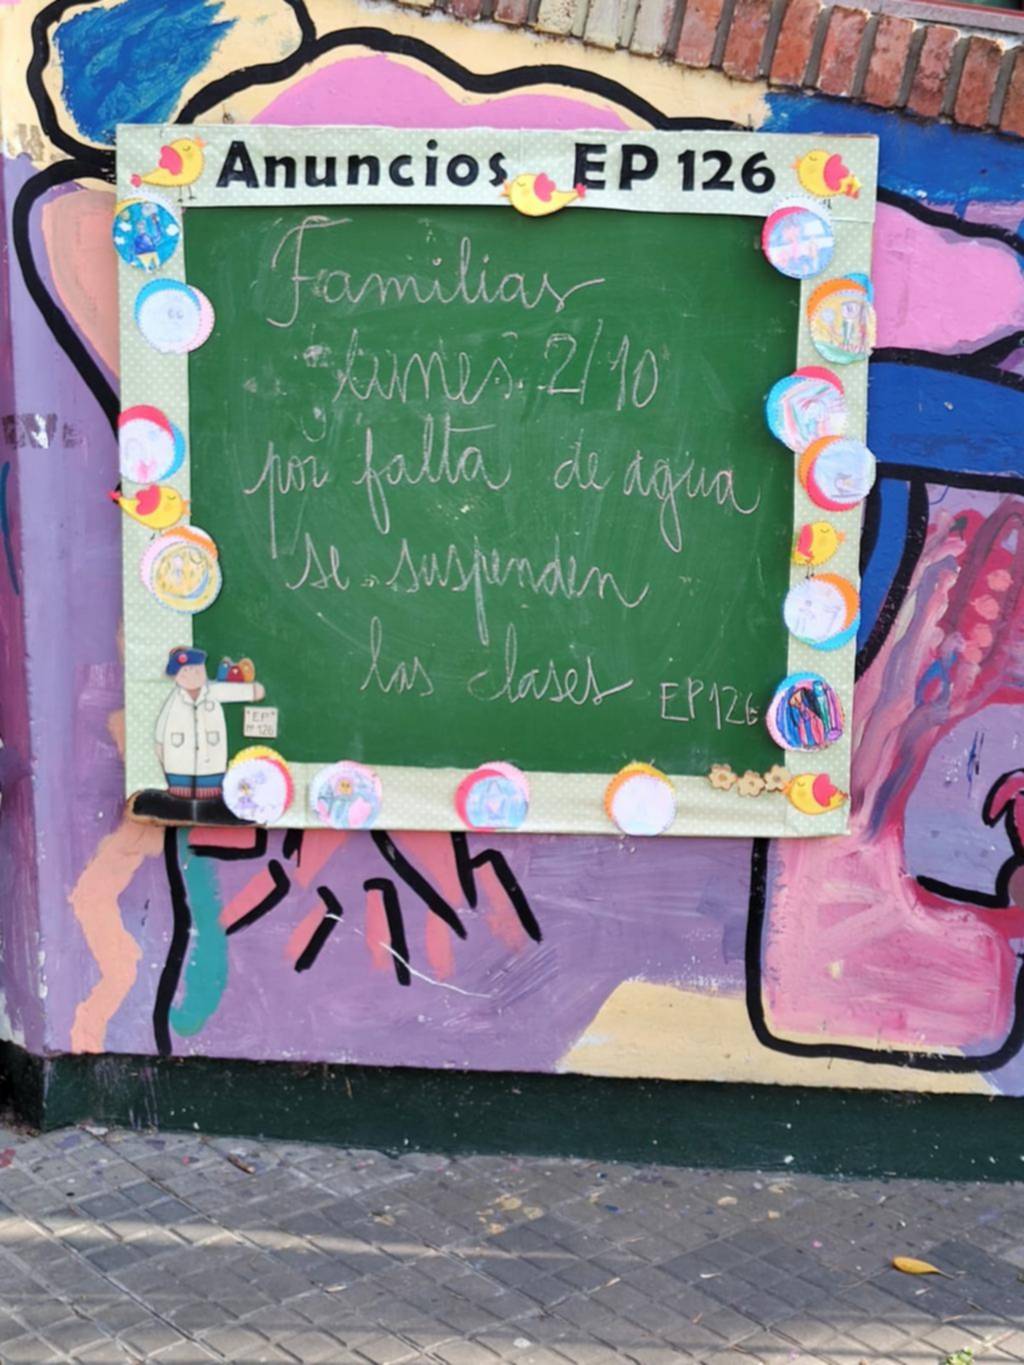 Anuncios EP 126
Familias
lunes 2/10
por falta de agua
se suspenden
las clases
EP126
"EP"
Nº126